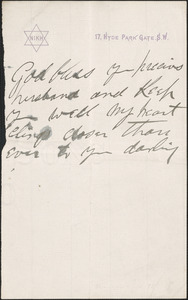 17, HYDE PARK GATE S.W.
God bless you precious
husband and keep
you well My heart
clings closer than
ever to you darling